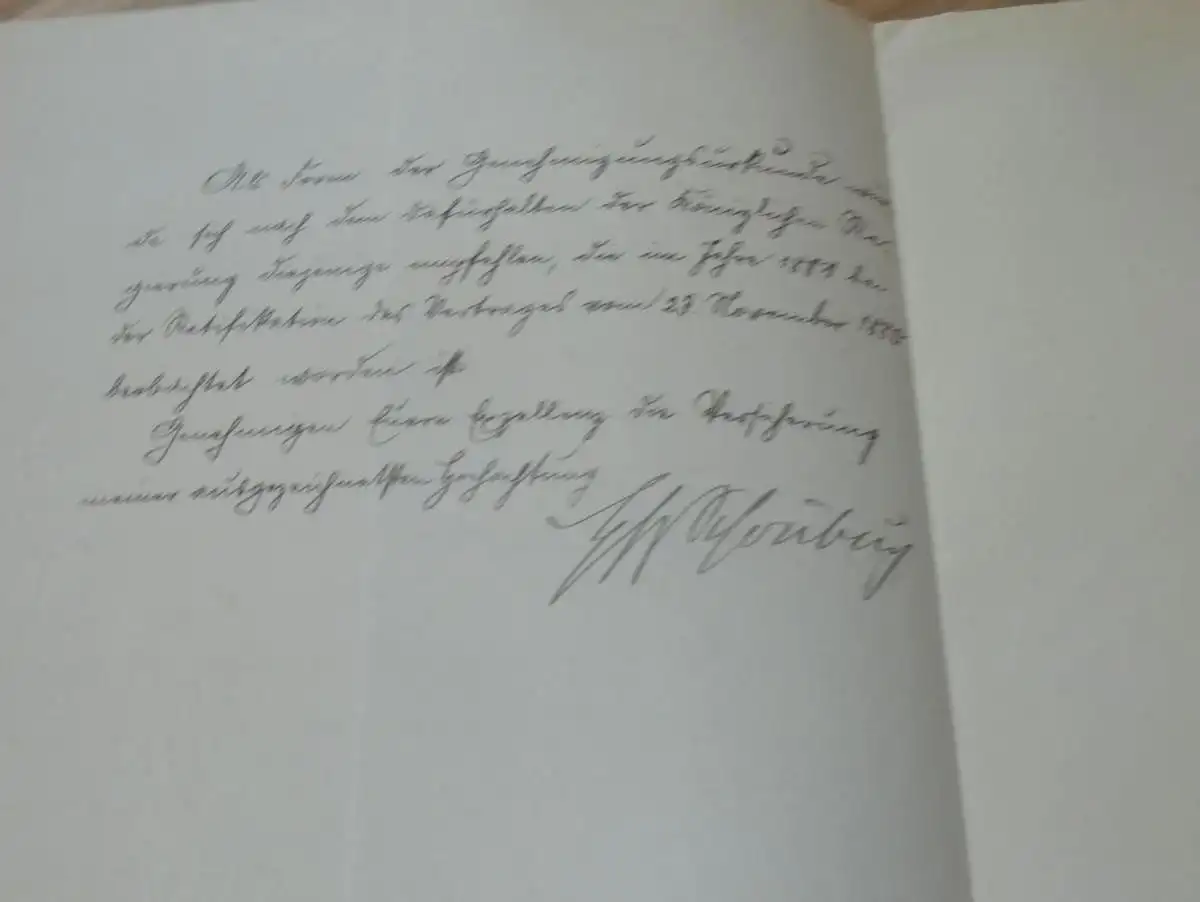 Als Form der Genehmigungsurkunde wür
de sich nach dem Dafürhalten der Königlichen Re
gierung diejenige empfehlen, die im Jahre 1881 bei
der Ratifikation des Vertrages vom 23 November
beobachtet worden ist
Genehmigen Euere Exzellenz die Versicherung
meiner ausgezeichnetsten Hochachtung